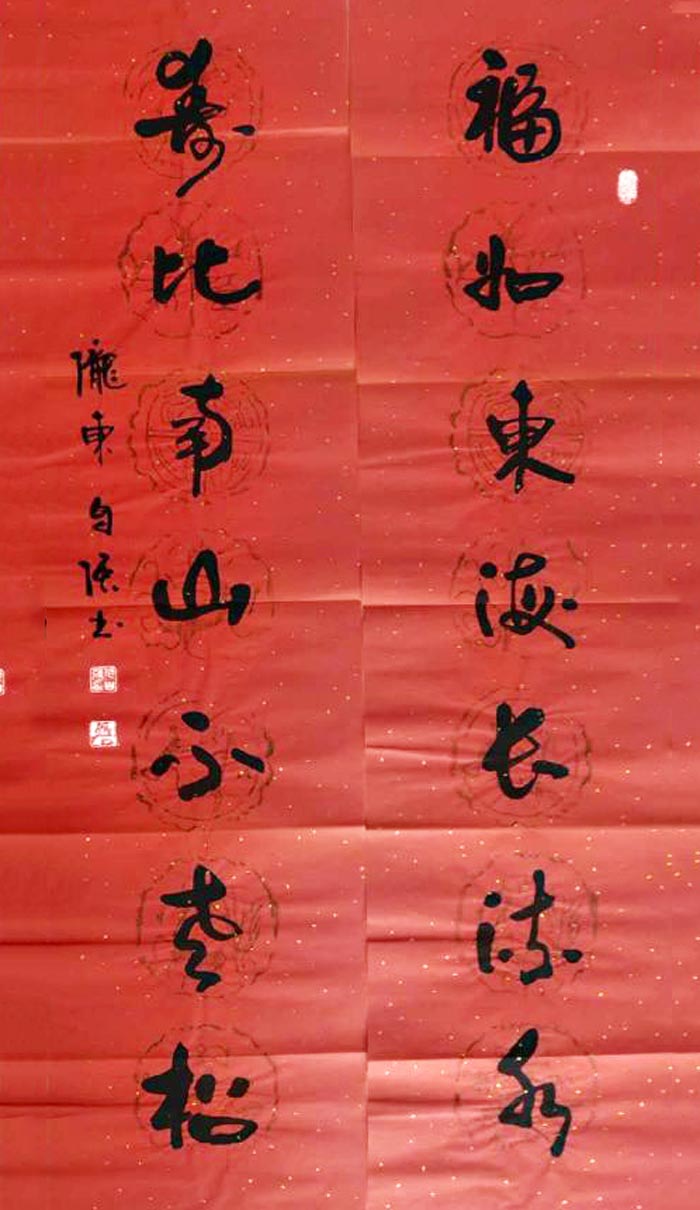 福如東海长流水
壽比南山不老松
隴東白强书